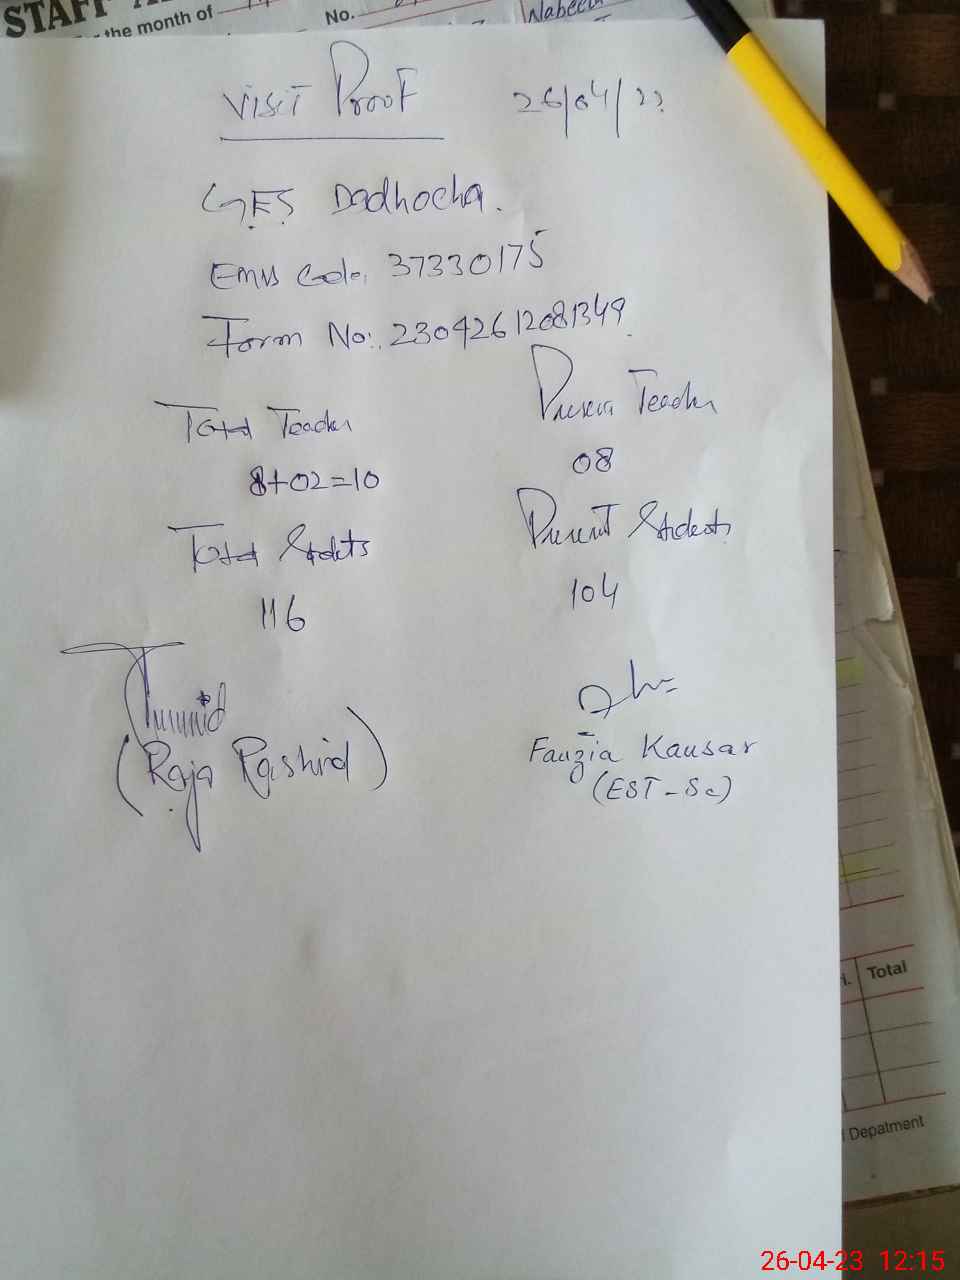 STAFF
the month of
No.
Nabeela
Visit Proof 26/04/23
G.E.S Dadhocha.
EMIS Code: 37330175
Form No: 23042612081349
Total Teacher Present Teacher
8+02=10 08
Total Students Present Students
116 104
(Raja Rashid)
Fauzia Kausar
(EST-Sc)
Total
Depatment
26-04-23 12:15